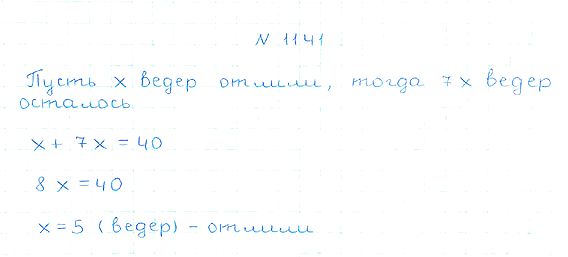 N 1141
Пусть x ведер отлили, тогда 7x ведер
осталось
x + 7x = 40
8x = 40
x = 5 (ведер) - отлили